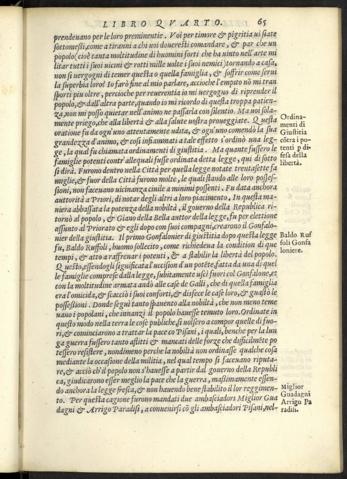 LIBRO QVARTO. 65
prendeuano per le loro preminentie. Voi per timore & pigritia ui siate
sottomessi, come a tiranni a chi uoi douereste comandare, & par che un
popolo, cioè tanta moltitudine di huomini forti che ha uinto nell'arte mi
litar tutti i suoi uicini & rotti mille uolte i suoi nemici, tornando a casa,
non si uergogni di temer questa o quella famiglia, & soffrir come serui
la superbia loro? Io farò fine al mio parlare, accioche l'empito nõ mi tran
sporti piu oltre, percioche per reuerentia io mi uergogno di riprender il
popolo, & dall'altra parte, quando io mi ricordo di questa troppa patien-
za, non mi posso quietar nell'animo ne passarla con silentio. Ma uoi sola-
mente priego, che alla libertà & alla salute uostra prouueggiate. Questa
oratione fu da ogni uno attentamente udita, & ogni uno comendò la sua
grandezza d'animo, & così infiammati a tale effetto s'ordinò una leg-
ge, la qual fu chiamata ordinamenti di giustitia. Ma quante fussero le
famiglie potenti contr'alle quali fusse ordinata detta legge, qui di sotto
si dirà. Furono dentro nella Città per quella legge notate trentasette fa
miglie, & fuor della Città furono molto, le quali stando alle loro posses-
sioni, non faceuano uicinanza ciuile a minimi possenti. Fu data anchora
auttorità a Priori, di notar degli altri a loro piacimento. In questa ma-
niera abbassata la potenza della nobiltà, il gouerno della Republica ri-
tornò al popolo, & Giano della Bella auttor della legge, fu per elettione
assunto al Priorato & egli dopo con suoi compagni, crearono il Gonfalo-
nier della giustitia. Il primo Gonfalonier di giustitia dopo questa legge
fu, Baldo Ruffoli, huomo sollecito, come richiedeua la condition di que
tempi, & atto a raffrenar i potenti, & a stabilir la libertà del popolo.
Questo, essendogli significata l'uccision d'un potēte, fatta da una di quel
le famiglie comprese dalla legge, subitamente uscì fuori col Gonfalone, et
con la moltitudine armata andò alle case de Galli, che di questa famiglia
era l'homicida, & scacciò i suoi conforti, & disfece le case loro, & guastò le
possessioni. Donde seguì tanto spauento alla nobiltà, che non meno teme
uano i popolani, che innanzi il popolo hauesse temuto loro. Ordinate in
questo modo nella terra le cose publiche, si uolsero a compor quelle di fuo-
ri, & cominciarono a trattar la pace co Pisani, i quali, benche per la lun
ga guerra fussero tanto aflitti & mancati delle forze che difficilmēte po
tessero resistere, nondimeno perche la nobiltà non ordinasse qualche cosa
mediante la occasione della militia, nel qual tempo si faceuano riputa-
re, & acciò ch'il popolo non s'hauesse a partir dal gouerno della Republi
ca, giudicarono esser meglio la pace che la guerra, massimamente essen-
do anchora la legge fresca, & non hauendo bene stabilito il lor reggimen-
to. Per questa cagione furono mandati due ambasciadori Miglior Gua
dagni & Arrigo Paradisi, a conuenirsi cõ gli ambasciadori Pisani, nel-
Ordina-
menti di
Giustitia
cõtra i po-
tenti p di-
fesa della
libertà.
Baldo Ruf
foli Gonfa
loniere.
Miglior
Guadagni
Arrigo Pa
radisi.